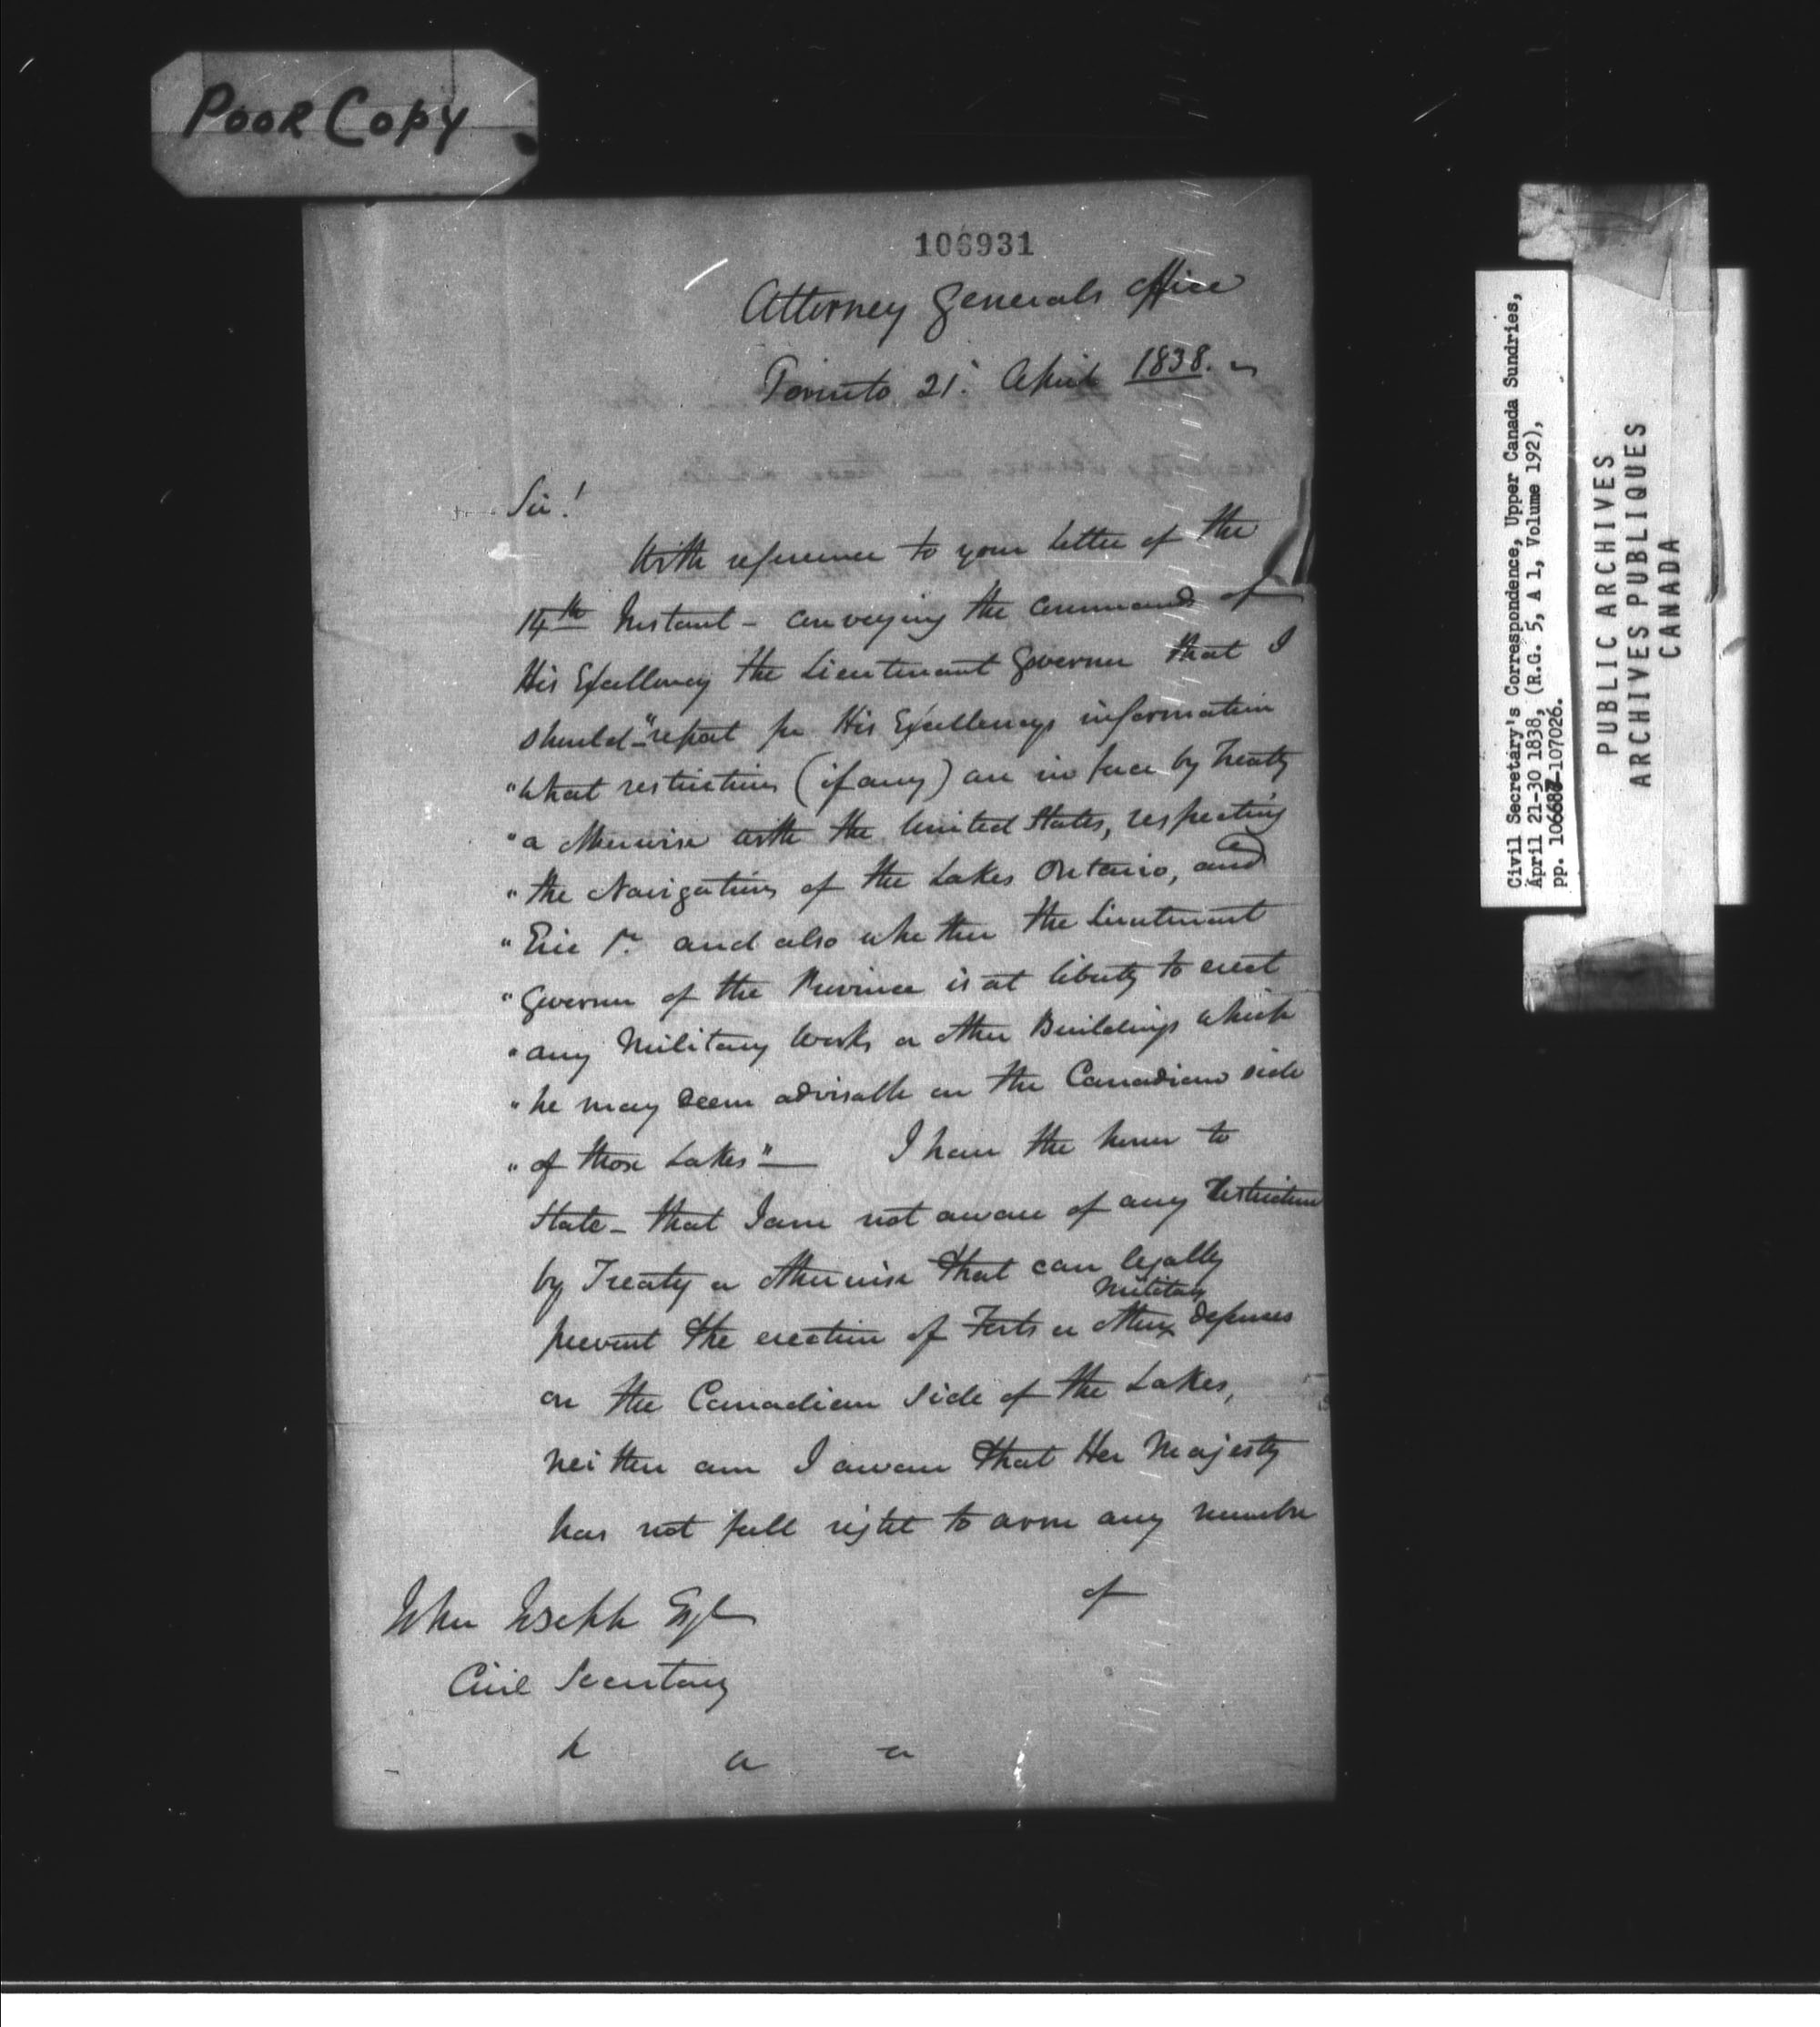 POOR COPY
106931
Attorney Generals office
Toronto 21st April 1838.
Sir!
With reference to your Letter of the
14th Instant - conveying the commands of
His Excellency the Lieutenant Governor that I
should - "report for His Excellencys information
"what restrictions (if any) are in force by Treaty
"or otherwise with the United States, respecting
"the Navigation of the Lakes Ontario, and
"Erie and also whether the Lieutenant
"Governor of the Province is at liberty to erect
"any Military Works or other Buildings which
"he may deem advisable on the Canadian side
"of those Lakes" — I have the honor to
State - that I am not aware of any restriction
by Treaty or otherwise that can legally
prevent the erection of Forts or other Military defences
on the Canadian side of the Lakes,
neither am I aware that Her Majesty
has not full right to arm any number
of
John Joseph Esqr
Civil Secretary
Civil Secretary's Correspondence, Upper Canada Sundries,
April 21-30 1838, (R.G. 5, A 1, Volume 192),
pp. 106887-107026.
PUBLIC ARCHIVES
ARCHIVES PUBLIQUES
CANADA